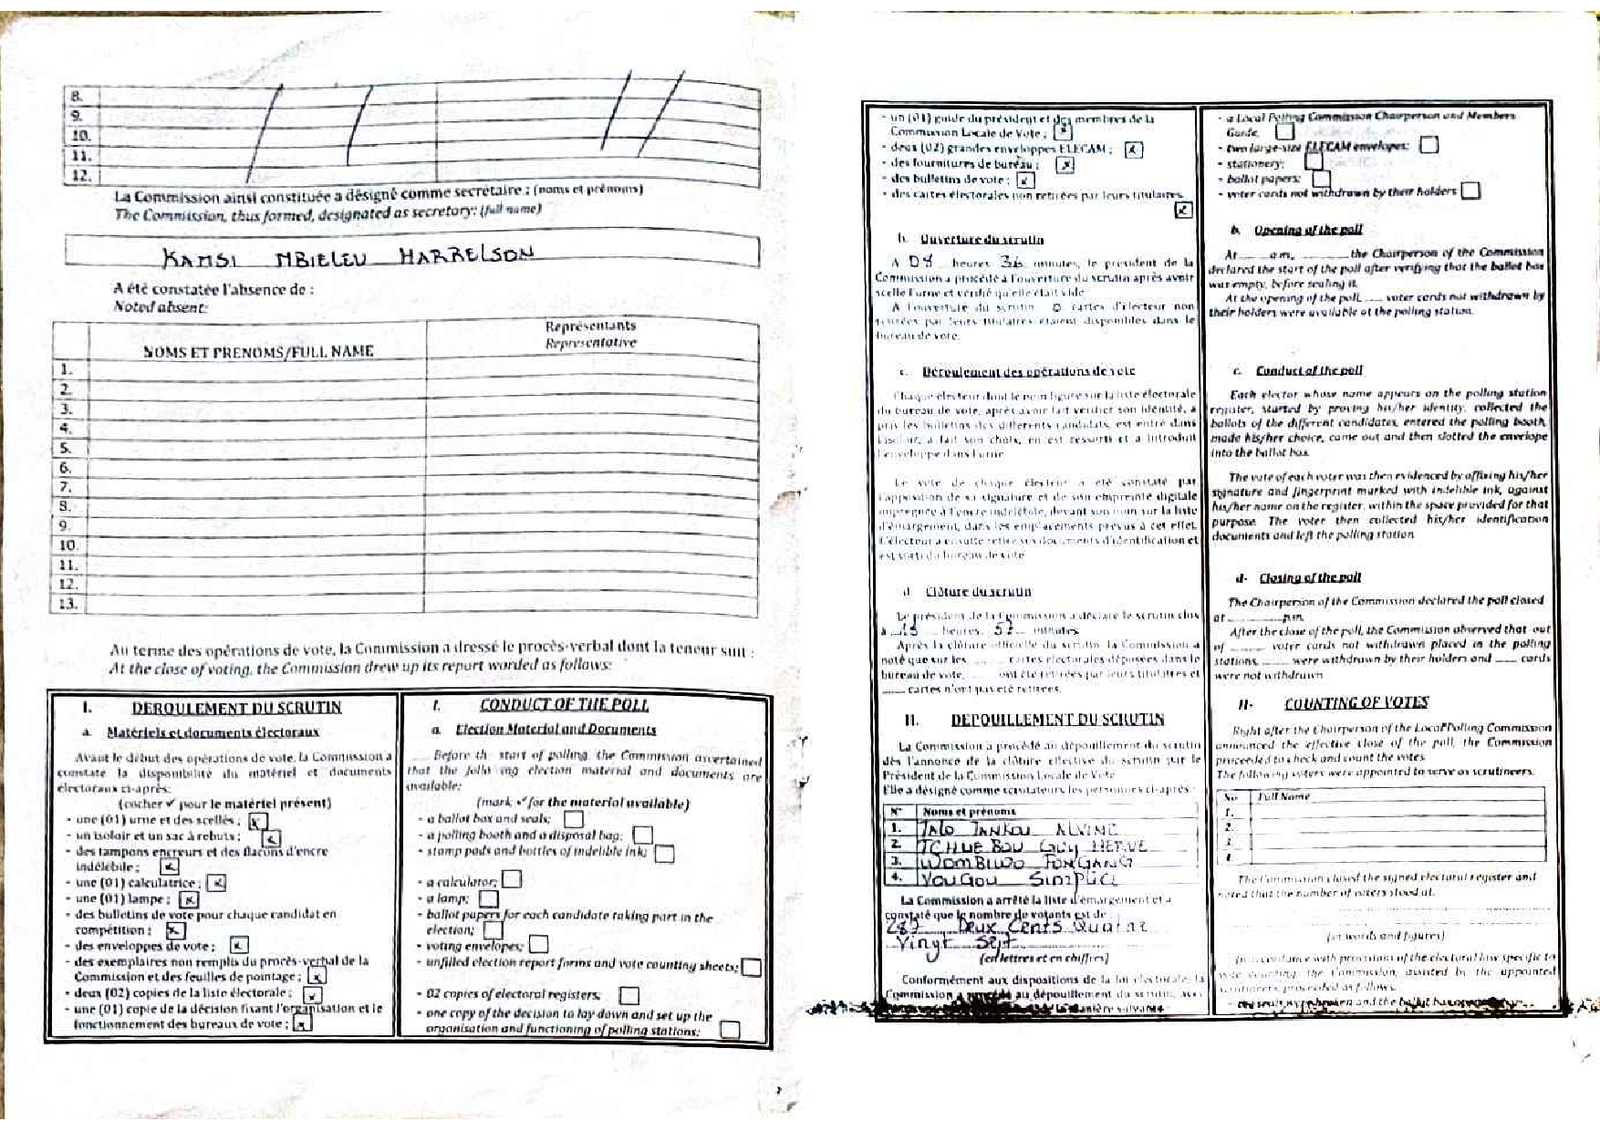 8.
9.
10.
11.
12.
La Commission ainsi constituée a désigné comme secrétaire : (noms et prénoms)
The Commission, thus formed, designated as secretary: (full name)
KAMSI MBIELEU HARRELSON
A été constatée l'absence de :
Noted absent:
NOMS ET PRENOMS/FULL NAME
Représentants
Representative
1.
2.
3.
4.
5.
6.
7.
8.
9.
10.
11.
12.
13.
Au terme des opérations de vote, la Commission a dressé le procès-verbal dont la teneur suit :
At the close of voting, the Commission drew up its report worded as follows:
I. DEROULEMENT DU SCRUTIN
a. Matériels et documents électoraux
Avant le début des opérations de vote, la Commission a
constaté la disponibilité du matériel et documents
électoraux ci-après:
(cocher ✓ pour le matériel présent)
- une (01) urne et des scellés ;
- un isoloir et un sac à rebuts ;
- des tampons encreurs et des flacons d'encre
indélébile ;
- une (01) calculatrice ;
- une (01) lampe ;
- des bulletins de vote pour chaque candidat en
compétition ;
- des enveloppes de vote ;
- des exemplaires non remplis du procès-verbal de la
Commission et des feuilles de pointage ;
- deux (02) copies de la liste électorale ;
- une (01) copie de la décision fixant l'organisation et le
fonctionnement des bureaux de vote ;
I. CONDUCT OF THE POLL
a. Election Material and Documents
Before th start of polling, the Commission ascertained
that the follo ing election material and documents are
available:
(mark ✓ for the material available)
- a ballot box and seals;
- a polling booth and a disposal bag;
- stamp pads and bottles of indelible ink;
- a calculator;
- a lamp;
- ballot papers for each candidate taking part in the
election;
- voting envelopes;
- unfilled election report forms and vote counting sheets;
- 02 copies of electoral registers;
- one copy of the decision to lay down and set up the
organisation and functioning of polling stations;
- un (01) guide du président et des membres de la
Commission Locale de Vote ;
- deux (02) grandes enveloppes ELECAM ;
- des fournitures de bureau ;
- des bulletins de vote ;
- des cartes électorales non retirées par leurs titulaires
b. Ouverture du scrutin
A 08 heures 36 minutes, le président de la
Commission a procédé à l'ouverture du scrutin après avoir
scellé l'urne et vérifié qu'elle était vide.
A l'ouverture du scrutin 0 cartes d'électeur non
retirées par leurs titulaires étaient disponibles dans le
bureau de vote.
c. Déroulement des opérations de vote
Chaque électeur dont le nom figure sur la liste électorale
du bureau de vote, après avoir fait vérifier son identité, a
pris les bulletins des différents candidats, est entré dans
l'isoloir, a fait son choix, en est ressorti et a introduit
l'enveloppe dans l'urne
Le vote de chaque électeur a été constaté par
l'apposition de sa signature et de son empreinte digitale
imprégnée à l'encre indélébile, devant son nom sur la liste
d'émargement, dans les emplacements prévus à cet effet.
L'électeur a ensuite retiré ses documents d'identification et
est sorti du bureau de vote
d. Clôture du scrutin
Le président de la Commission a déclaré le scrutin clos
à heures 57 minutes
Après la clôture officielle du scrutin la Commission a
noté que sur les cartes électorales déposées dans le
bureau de vote, ont été retirées par leurs titulaires et
cartes n'ont pas été retirées.
II. DEPOUILLEMENT DU SCRUTIN
La Commission a procédé au dépouillement du scrutin
dès l'annonce de la clôture effective du scrutin par le
Président de la Commission Locale de Vote
Elle a désigné comme scrutateurs les personnes ci-après :
N° Noms et prénoms
1. TALO TANKOU ALVINE
2. TCHUE BOU GUY HERVE
3. WOMBIWO FONGANG
4. YOUGOU SIMPLICE
La Commission a arrêté la liste d'émargement et a
constaté que le nombre de votants est de
287 Deux Cents Quatre
Vingt Sept
(en lettres et en chiffres)
Conformément aux dispositions de la loi électorale, la
Commission a procédé au dépouillement du scrutin,
la manière suivante
- a Local Polling Commission Chairperson and Members
Guide.
- two large-size ELECAM envelopes;
- stationery;
- ballot papers;
- voter cards not withdrawn by their holders
b. Opening of the poll
At a.m, the Chairperson of the Commission
declared the start of the poll after verifying that the ballot box
was empty, before sealing it.
At the opening of the poll, voter cards not withdrawn by
their holders were available at the polling station.
c. Conduct of the poll
Each elector whose name appears on the polling station
register, started by proving his/her identity, collected the
ballots of the different candidates, entered the polling booth,
made his/her choice, came out and then slotted the envelope
into the ballot box.
The vote of each voter was then evidenced by affixing his/her
signature and fingerprint marked with indelible ink, against
his/her name on the register, within the space provided for that
purpose. The voter then collected his/her identification
documents and left the polling station
d- Closing of the poll
The Chairperson of the Commission declared the poll closed
at p.m.
After the close of the poll, the Commission observed that out
of voter cards not withdrawn placed in the polling
stations, were withdrawn by their holders and cards
were not withdrawn
II- COUNTING OF VOTES
Right after the Chairperson of the Local Polling Commission
announced the effective close of the poll, the Commission
proceeded to check and count the votes
The following voters were appointed to serve as scrutineers.
No Full Name
1.
2.
3
4
The Commission closed the signed electoral register and
noted that the number of voters stood at.
(in words and figures)
In accordance with provisions of the electoral law specific to
vote counting, the Commission, assisted by the appointed
scrutineers, proceeded as follows.